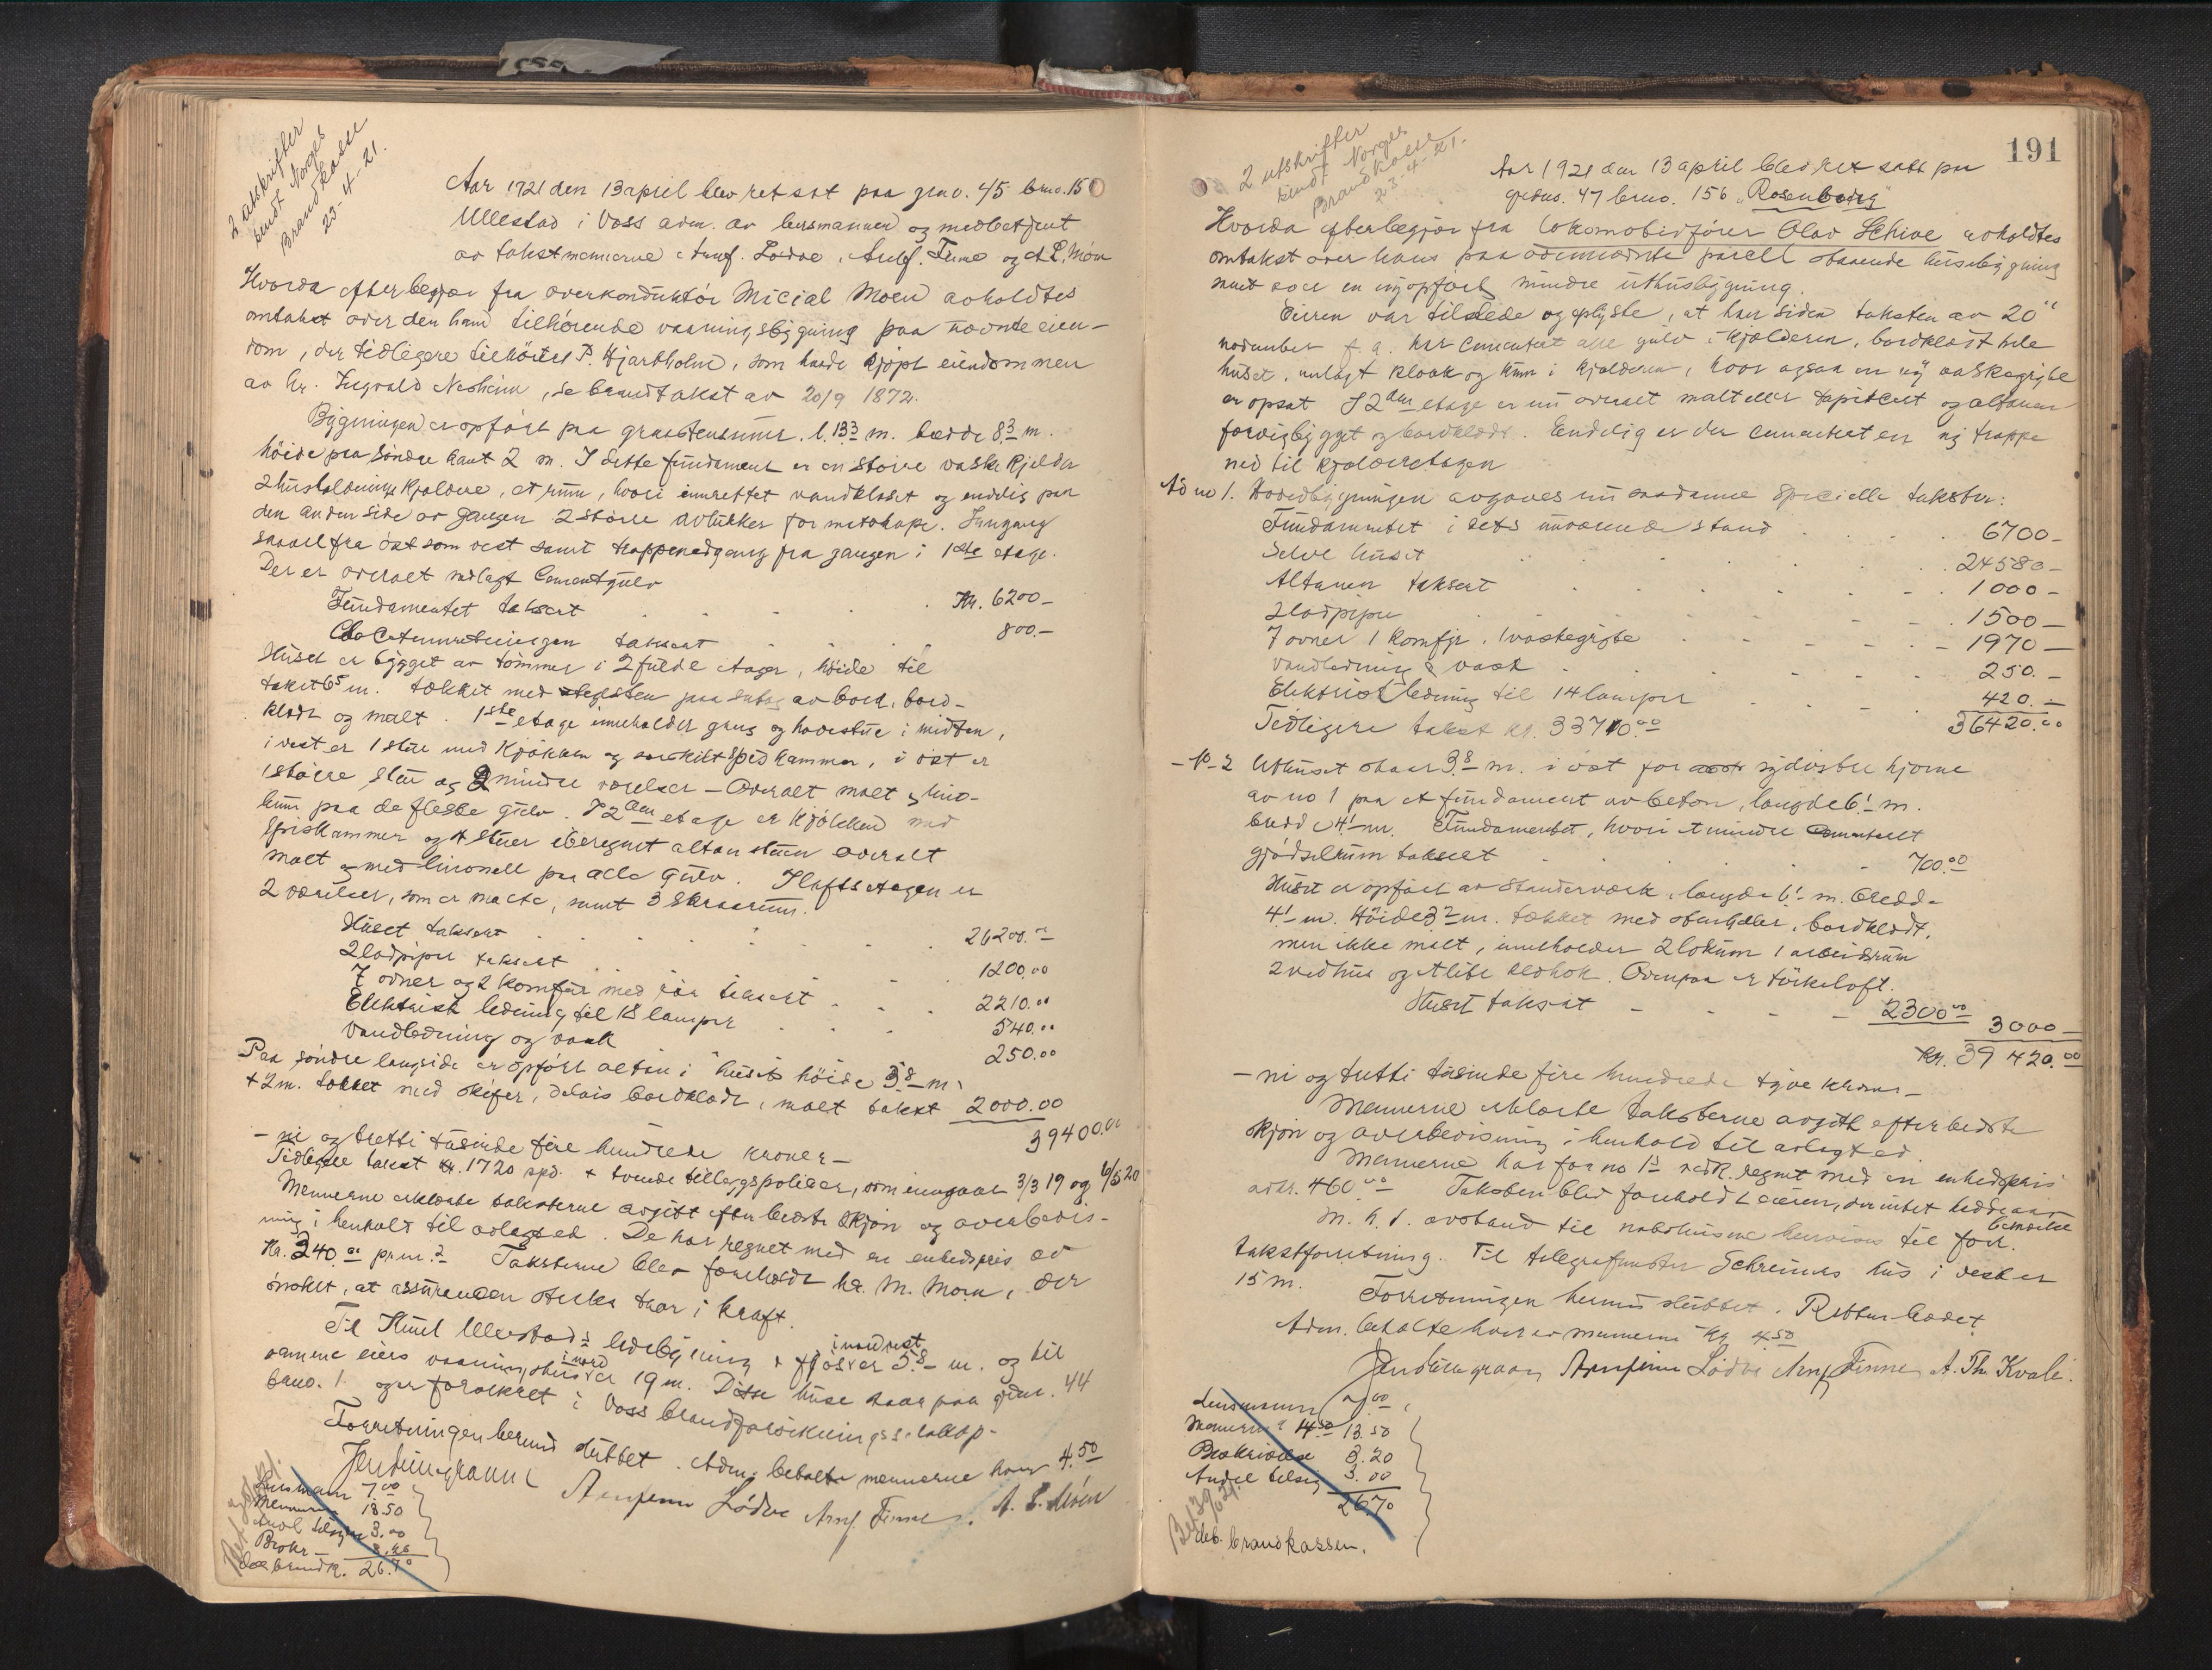 2 utskrifter
sendt Norges
Brandkasse
23-4-21.
Aar 1921 den 13 april blev ret sat paa gno. 45 bno. 15
Ullestad i Voss adm. av lensmannen og medbetjent
av takstmennerne Arnf. Lødve, Arnf. Finne og A L. Møen
Hvorda efter begjær fra overkonduktør Micial Moen avholdtes
omtakst over den ham tilhørende vaaningsbygning paa nævnte eien-
dom, der tidligere tilhørte P. Hjartholm, som havde kjøpt eiendommen
av hr. Ingvald Nesheim, se brandtakst av 20/9 1872.
Bygningen er opført paa graastensmur. l. 13³ m. bredde 8³ m.
høide paa søndre kant 2 m. I dette fundament er en større vaskekjelder
2 husholdningskjeldere, et rum, hvori innrettet vandkloset og endelig paa
den anden side av gangen 2 større avlukker for matskape. Inngang
saavel fra øst som vest samt trappenedgang fra gangen i 1ste etage.
Der er overalt nedlagt Cementgulv
Fundamentet taksert Kr. 6200-
Closetinnretningen taksert 800.-
Huset er bygget av tømmer i 2 fulde etager, høide til
taket 6⁵ m. tækket med teglsten paa sutag av bord, bord-
klædt og malt. 1ste etage inneholder gang og havestue i midten,
i vest er 1 stue med kjøkken og særskilt spiskammer, i øst er
1 større stue og 2 mindre værelser - Overalt malt og lino-
leum paa de fleste gulv. I 2den etage er kjøkken med
spiskammer og 4 stuer iberegnet altanstuen overalt
malt og med linoneum paa alle gulv. I loftsetagen er
2 værelser, som er malte, samt 3 skraarum.
Huset taksert 26200.-
2 ladpiper taksert 1200.00
7 ovner og 2 komfur med rør taksert 2210.00
Elektrisk ledning til 18 lamper 540.00
Vandledning og vask 250.00
Paa søndre langside er opført altan i husets høide 3⁸ m
+ 2 m. tækket med skifer, delvis bordklædt, malt takst 2000.00
39400.00
- ni og tretti tusinde fire hundrede kroner -
Tidligere takst kr. 1720 spd. + tvende tillægspolicer, som inngaar 3/3 19 og 6/5 20
Mennerne erklærte taksterne avgitt efter bedste skjøn og overbevis-
ning i henhold til avlagt ed. De har regnet med en enhedspris av
Kr. 340.00 pr. m.² Taksterne blev foreholdt hr. M. Moen, der
ønsket, at assurancen straks traa i kraft.
Til Knut Ullestads ledebygning & fjøs er 5⁸ m. i nordvest og til
samme eiers vaaningshus i nord er 19 m. Disse huse staar paa gno. 44
bno. 1 og er forsikret i Voss brandforsikringsselskap.
Forretningen hermed sluttet. Adm. betalte mennerne hver 4.50
Arnfinn Lødve Arnf. Finne. A. L. Møen
Lensmann 7.00
Mennerne 13.50
Andel tilsyn 3.00
Beskr.
deb brandk. 26.70
191
2 utskrifter
sendt Norges
Brandkasse
23-4-21.
Aar 1921 den 13 april blev ret satt paa
grdno. 47 bruno. 156 "Rosenborg"
Hvorda efter begjær fra lokomobilfører Olav Schive avholdtes
omtakst over hans paa ovennævnte parsell staaende husebygning
samt over en nyopført mindre uthusbygning.
Eieren var tilstede og oplyste, at han siden taksten av 20de
november f. a. har cementert alle gulv i kjelderen, bordklædt hele
huset, innlagt kloak og kum i kjelderen, hvor ogsaa en ny vaskegryte
er opsat I 2den etage er nu overalt malt eller tapicert og altanen
forviglygget og bordklædt. Endelig er der cementert en ny trappe
ned til kjelderetagen
Ad no 1. Hovedbygningen avgaves nu saadanne specielle takster:
Fundamentet i dets nuværende stand 6700-
Selve huset 24580-
Altanen taksert 1000-
2 ladpiper 1500-
7 ovner 1 komfyr. 1 vaskegryte 1970-
Vandledning & vask 250.-
Elektrisk ledning til 14 lamper 420.-
Tidligere takst kr. 33710.00 36420.00
- no - 2 Uthuset staar 3⁸ m. i øst for sydøstre hjørne
av no 1 paa et fundament av beton, længde 6¹ m.
bredde 4¹ m. Fundamentet, hvori et mindre cementert
gjødselrum taksert 700.00
Huset er opført av standerværk, længde 6¹ m. bredde
4¹ m. Høide 3² m. tækket med stenheller, bordklædt,
men ikke malt, inneholder 2 lokum 1 arbeidsrum
2 vedhus og et lite redhok. Ovenpaa er tørkeloft.
Huset taksert 2300.00 3000-
Kr. 39 420.00
- ni og tretti tusinde fire hundrede tyve kroner -
Mennerne erklærte taksterne avgitt efter bedste
skjøn og overbevisning i henhold til avlagt ed.
Mennerne har for no 1's vedk. regnet med en enhedspris
av kr. 460.00 Taksten blev foreholdt eieren, der intet hadde aa bemerke
M. h. t. avstand til nabohusene henvises til forr.
takstforretning. Til telegrafmester Schreiners hus i vest er
15 m. Forretningen hermed sluttet. Retten hævet
Adm. betalte hver av mennerne kr. 4.50
Arnfinn Lødve Arnf Finne A. Th. Kvale.
Lensmannen 7.00
Mennerne 13.50
Beskrivelse 3.20
Andel tilsyn 3.00
26.70
deb. brandkassen.